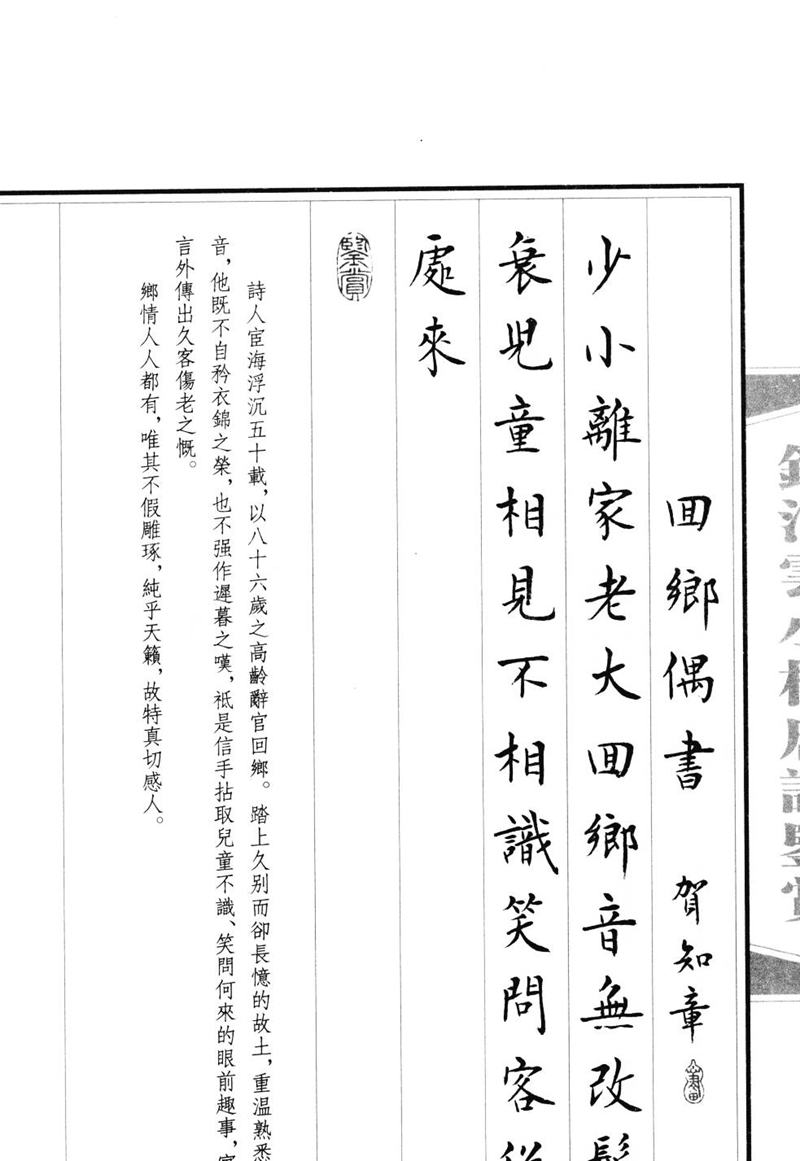 回鄉偶書 賀知章
少小離家老大回鄉音無改
衰兒童相見不相識笑問客
處來
鑒賞
詩人宦海浮沉五十載，以八十六歲之高齡辭官回鄉。踏上久别而卻長憶的故土，重温熟悉
音，他既不自矜衣錦之榮，也不强作遲暮之嘆，衹是信手拈取兒童不識、笑問何來的眼前趣事，
言外傳出久客傷老之慨。
鄉情人人都有，唯其不假雕琢，純乎天籟，故特真切感人。